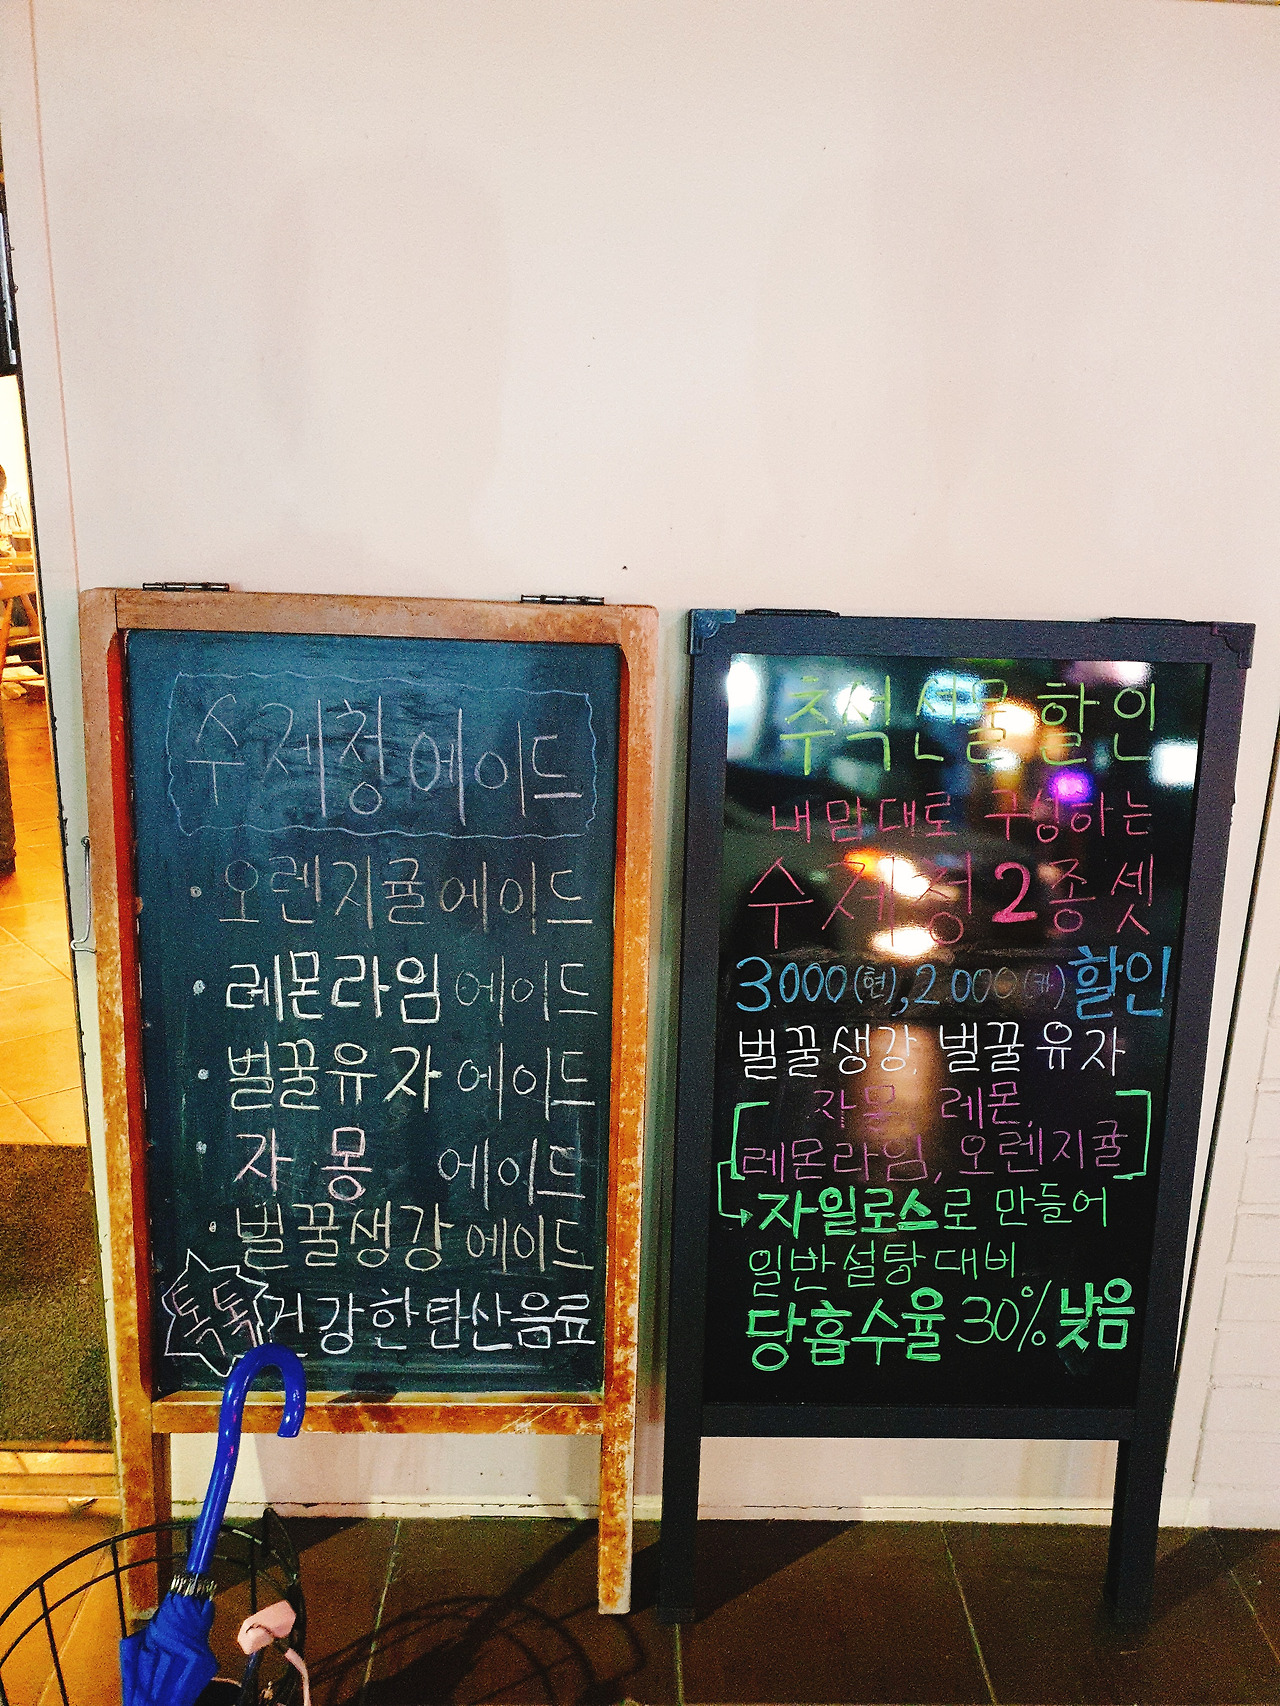 수제청에이드
· 오렌지귤에이드
· 레몬라임 에이드
· 벌꿀유자 에이드
· 자 몽 에이드
· 벌꿀생강 에이드
톡톡 건강한탄산음료
추석선물할인
내맘대로 구성하는
수제청2종셋
3.000(현), 2.000(카)할인
벌꿀생강, 벌꿀유자
[자몽, 레몬,
레몬라임, 오렌지귤]
↳자일로스로 만들어
일반설탕대비
당흡수율 30% 낮음